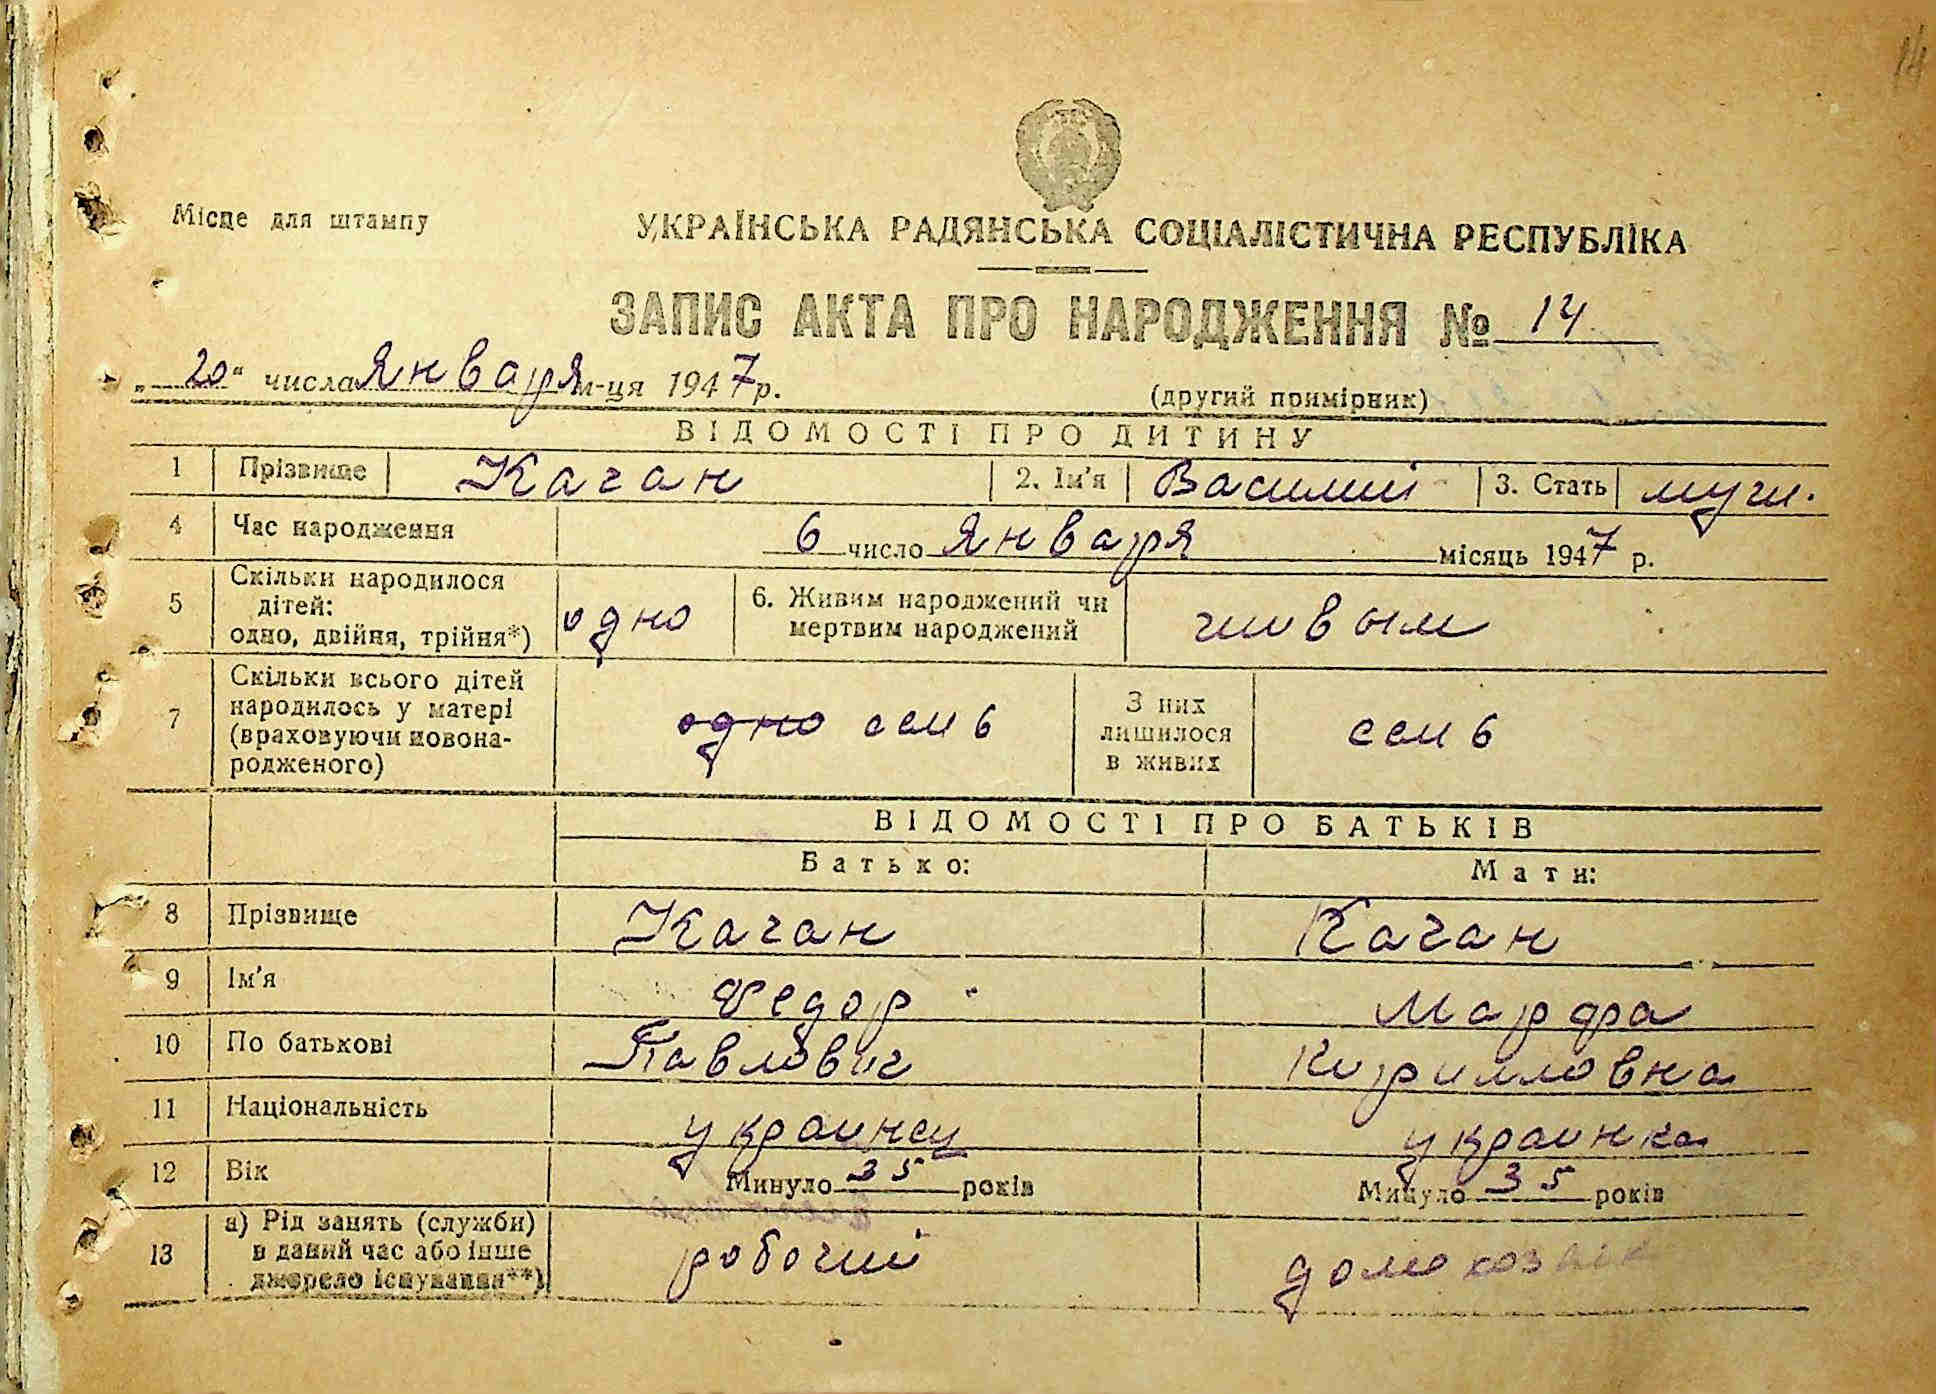 14
Місце для штампу
УКРАЇНСЬКА РАДЯНСЬКА СОЦІАЛІСТИЧНА РЕСПУБЛІКА
ЗАПИС АКТА ПРО НАРОДЖЕННЯ № 14
„20“ числа Января м-ця 1947 р.
(другий примірник)
ВІДОМОСТІ ПРО ДИТИНУ
1 Прізвище Качан 2. Ім'я Василий 3. Стать мужч.
4 Час народження 6 число Января місяць 1947 р.
5 Скільки народилося дітей: одно, двійня, трійня*) одно 6. Живим народжений чи мертвим народжений живым
7 Скільки всього дітей народилось у матері (враховуючи новонародженого) одно семь З них лишилося в живих семь
ВІДОМОСТІ ПРО БАТЬКІВ
Батько: Мати:
8 Прізвище Качан Качан
9 Ім'я Федор Марфа
10 По батькові Павлович Кирилловна
11 Національність украинец украинка
12 Вік Минуло 35 років Минуло 35 років
13 а) Рід занять (служби) в даний час або інше джерело існування**) робочий